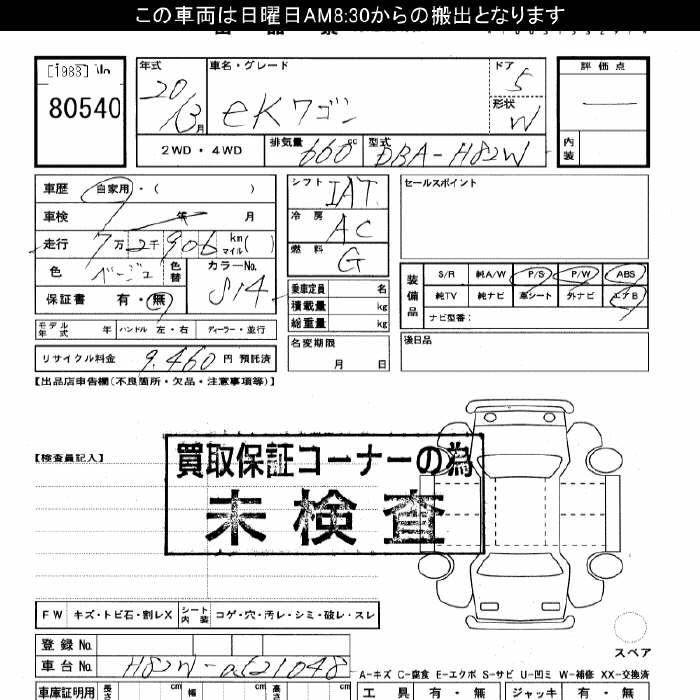 この車両は日曜日AM8:30からの搬出となります
[1983] No
80540
年式 車名・グレード ドア 評価点
20 eKワゴン 5
13月 形状 W
2WD・4WD 排気量 660cc 型式 DBA-H82W 内装
車歴 自家用・( )
車検 年 月
走行 7万2千906 km マイル( )
色 ベージュ 色替 カラーNo. S14
保証書 有・無
シフト IAT
冷房 AC
燃料 G
乗車定員 名
積載量 kg
総重量 kg
名変期限
月 日
セールスポイント
装備品 S/R 純A/W P/S P/W ABS
純TV 純ナビ 革シート 外ナビ エアB
ナビ型番:
後日品
モデル年式 年 ハンドル 左・右 ディーラー・並行
リサイクル料金 9,460 円 預託済
【出品店申告欄(不良箇所・欠品・注意事項等)】
【検査員記入】
買取保証コーナーの為
未検査
FW キズ・トビ石・割レX シート内装 コゲ・穴・汚レ・シミ・破レ・スレ
スペア
登録No.
車台No. H82W-
A-キズ C-腐食 E-エクボ S-サビ U-凹ミ W-補修 XX-交換済
車庫証明用 長さ cm 幅 cm 高さ cm
工具 有・無 ジャッキ 有・無